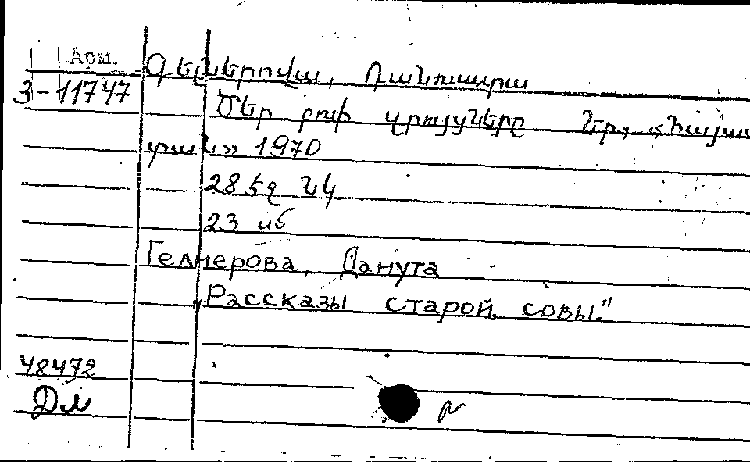 Арм.
Գելներովա, Դանուտա
3-11747
Ծեր բուի զրույցները Եր., «Հայաս
տան» 1970
28 էջ նկ
23 սմ
Гелнерова, Данута
„Рассказы старой совы."
48472
Дм